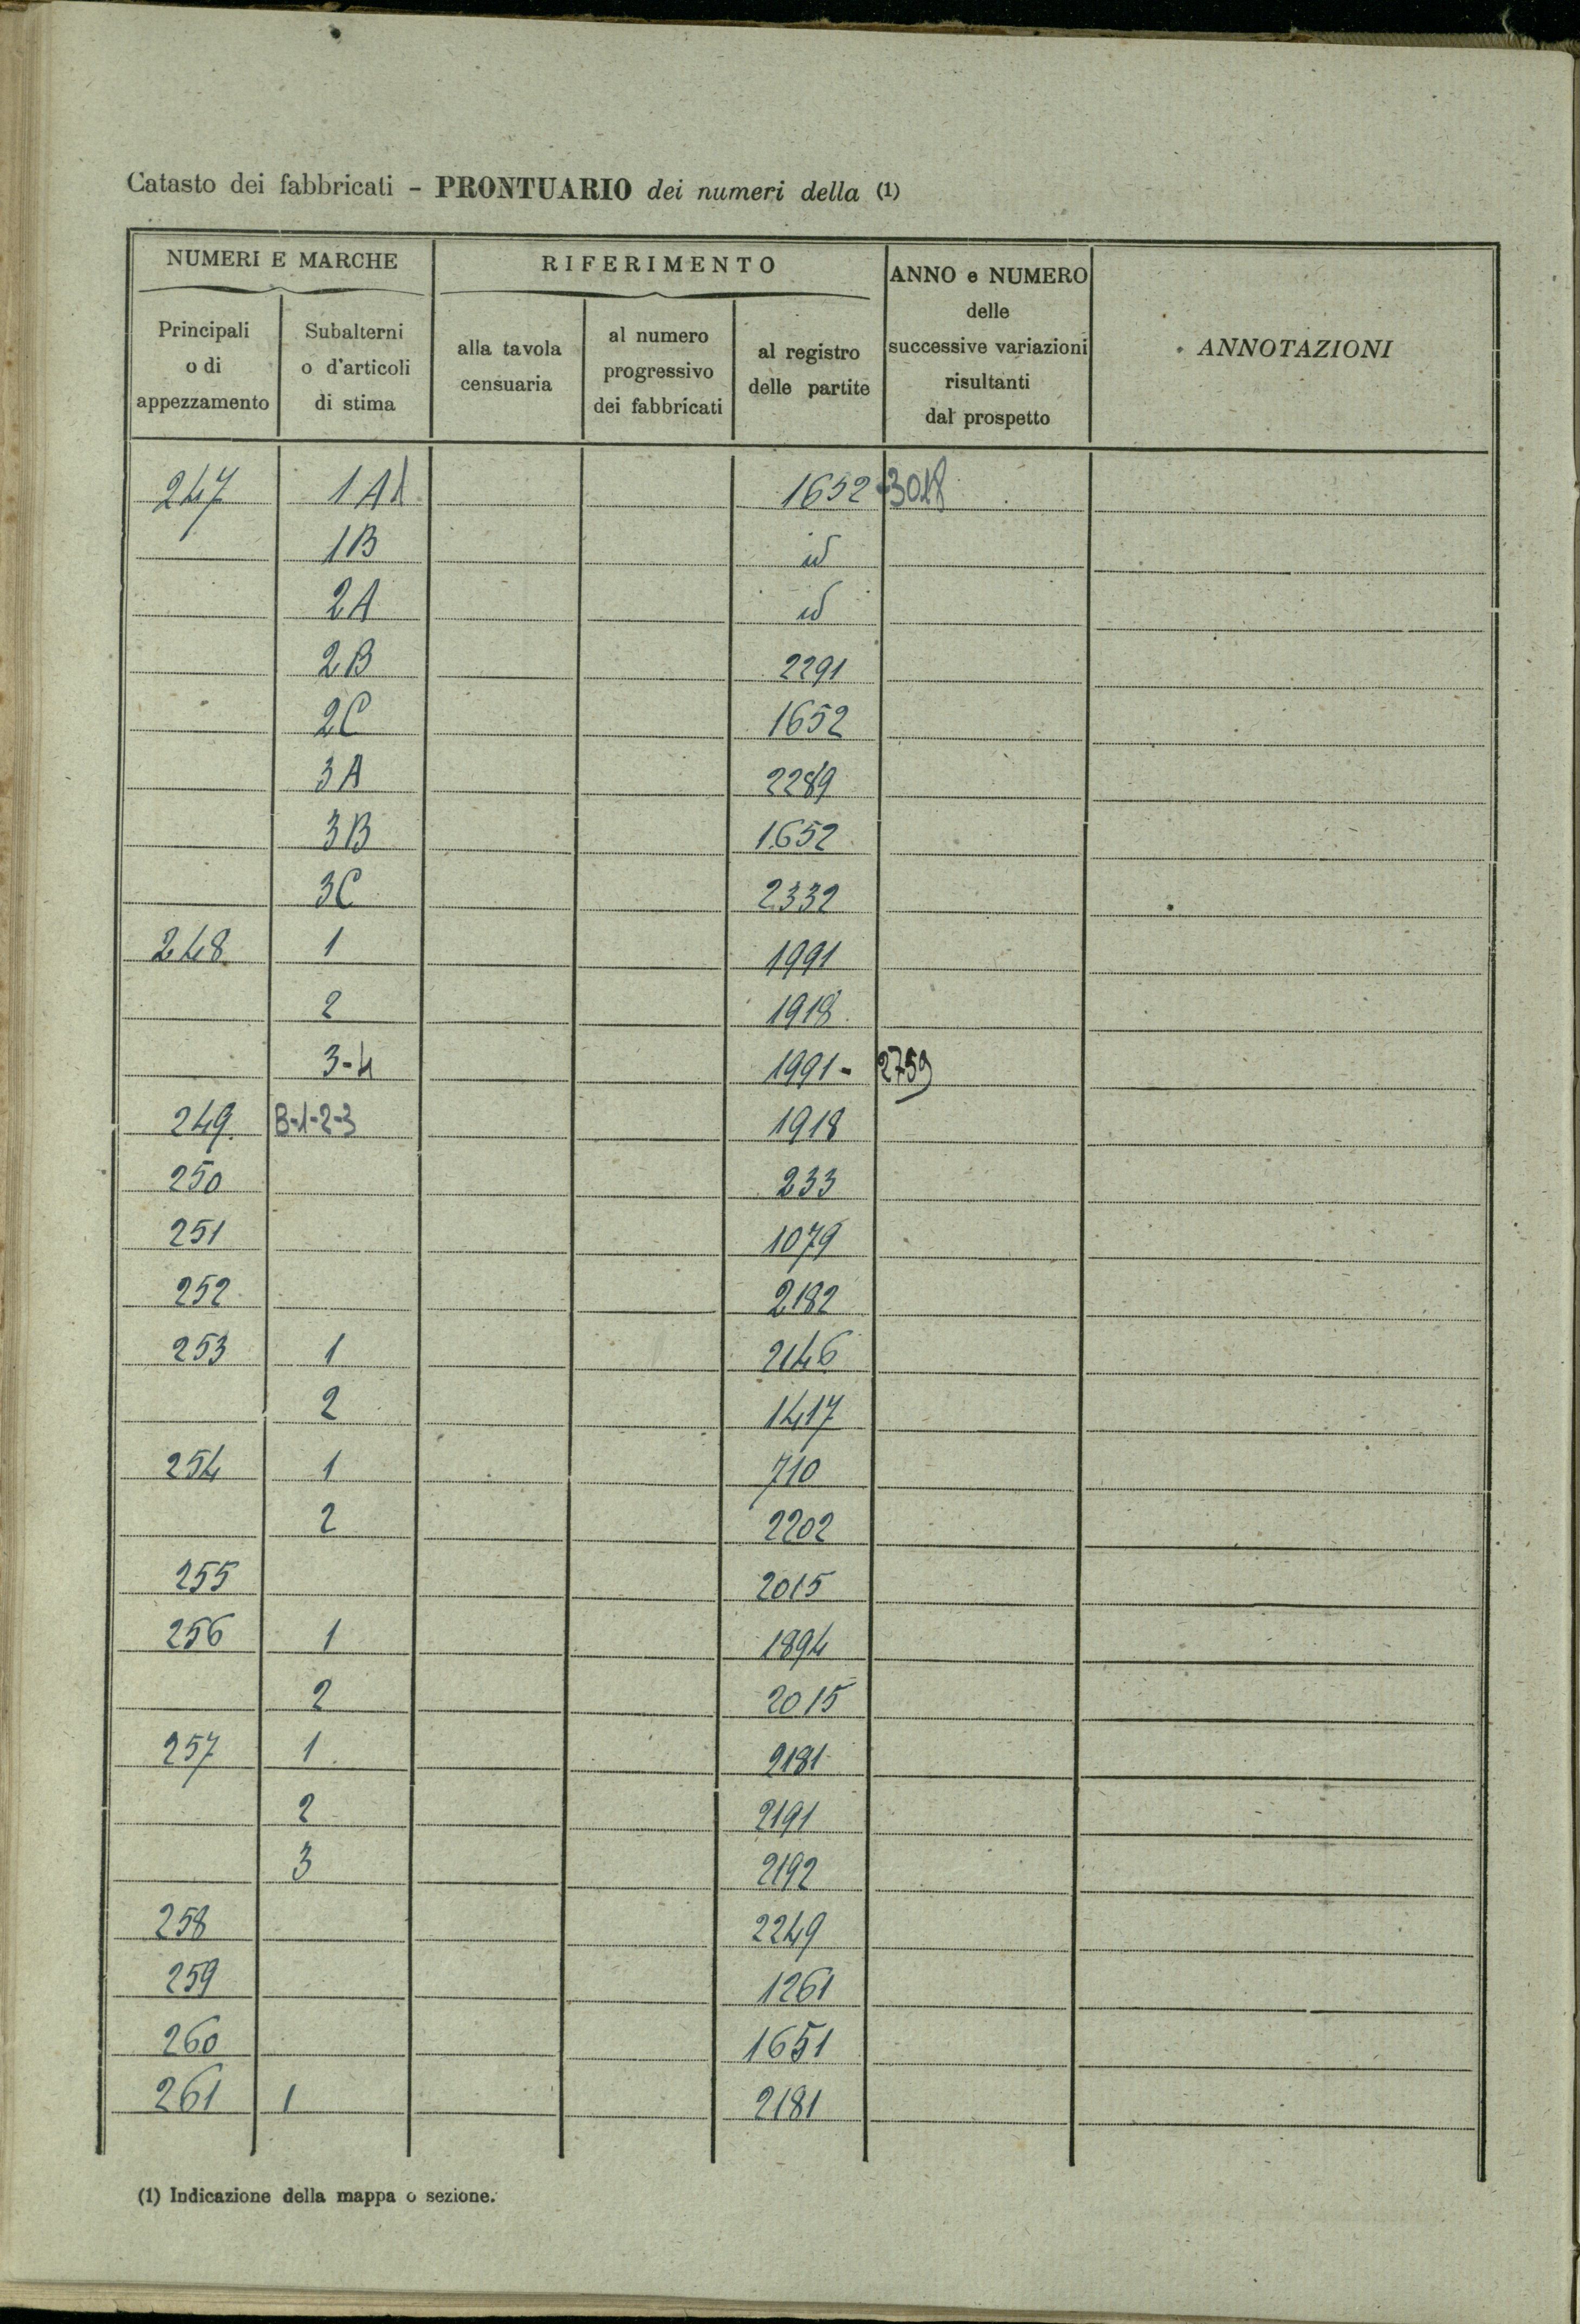 Catasto dei fabbricati - PRONTUARIO dei numeri della (1)
NUMERI E MARCHE
RIFERIMENTO
ANNO e NUMERO
delle
successive variazioni
risultanti
dal prospetto
ANNOTAZIONI
Principali
o di
appezzamento
Subalterni
o d'articoli
di stima
alla tavola
censuaria
al numero
progressivo
dei fabbricati
al registro
delle partite
247 1A1 1652-3018
1B id
2A id
2B 2291
2C 1652
3A 2289
3B 1652
3C 2332
248 1 1991
2 1918
3-4 1991-2759
249 B-1-2-3 1918
250 233
251 1079
252 2182
253 1 2146
2 1417
254 1 710
2 2202
255 2015
256 1 1894
2 2015
257 1 2181
2 2191
3 2192
258 2249
259 1261
260 1651
261 1 2181
(1) Indicazione della mappa o sezione.